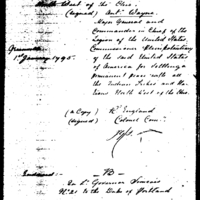 North West of the Ohio.
(signed) Ant: Wayne.
Major General and
Commander in Chief of the
Legion of the United States,
Commissioner Plenipotentiary
of the said United States
of America for settling a
permanent peace with all
the Indian Tribes and Na-
tions North West of the Ohio
Greenville
1st January 1795.
(a Copy) R. England
(signed) Colonel Com:
Endorsed: — 
In Lt. Governor Simcoe's
to the Duke of Portland